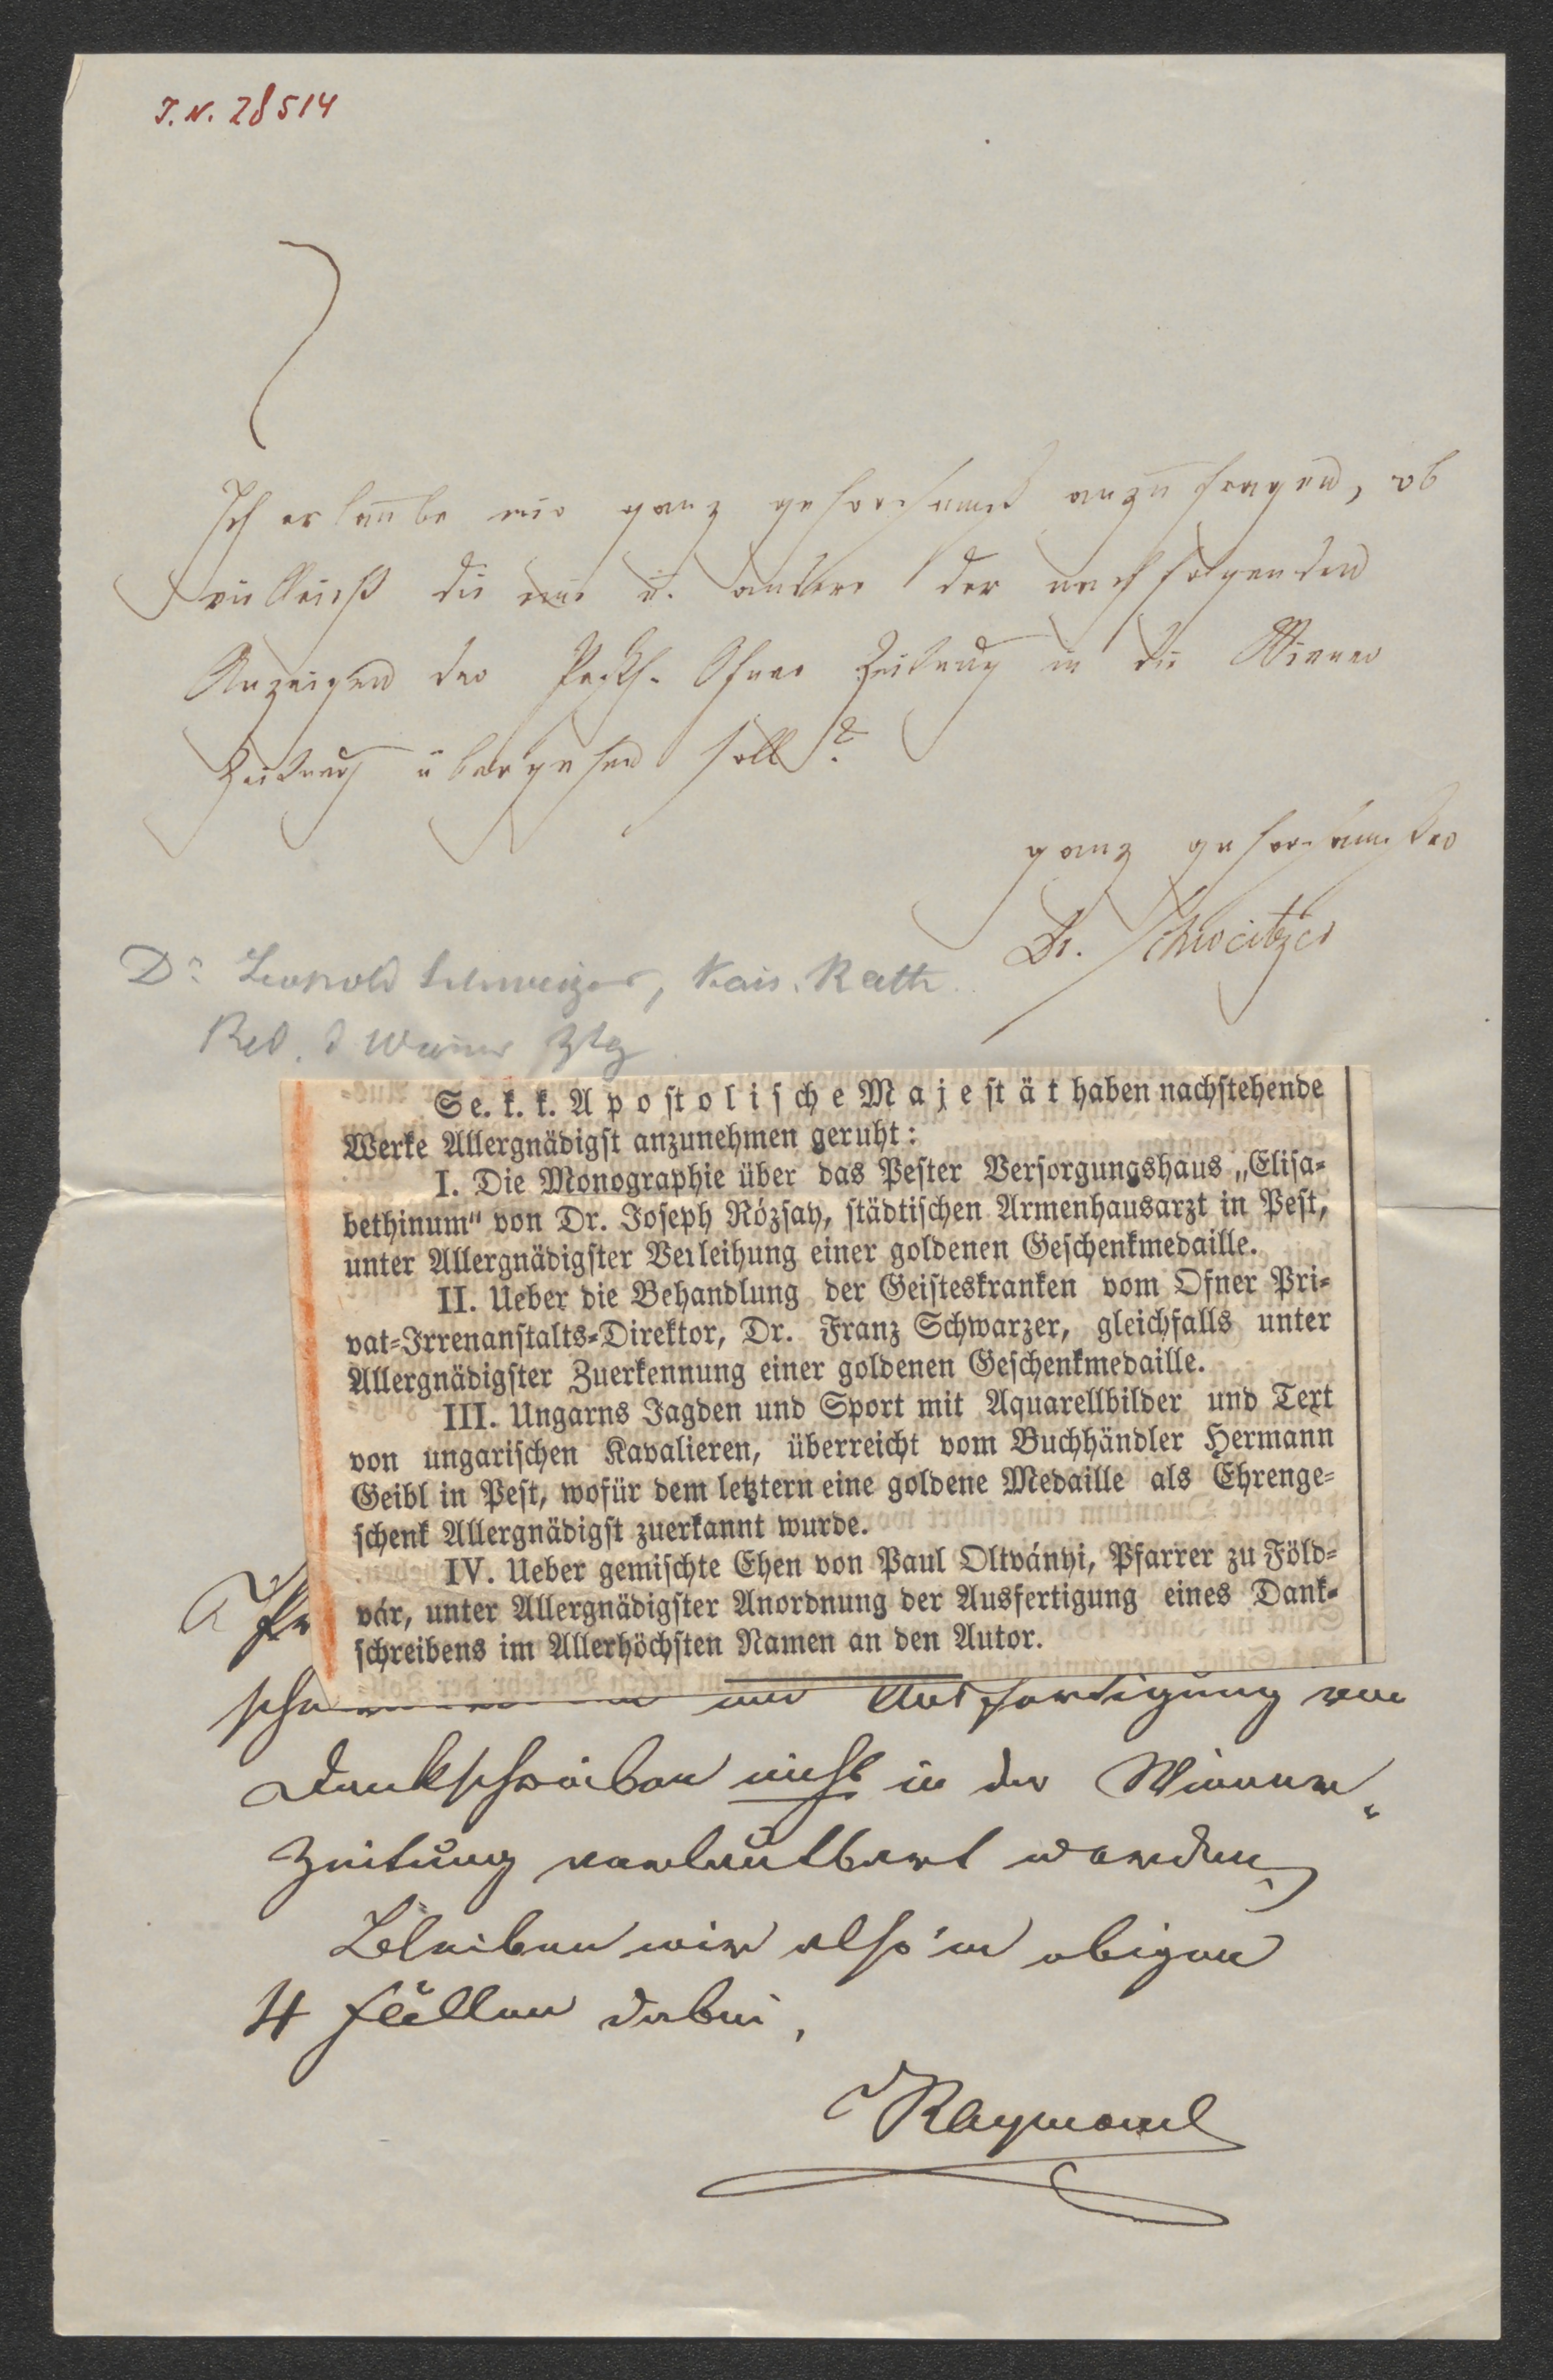 I.N. 28514
Ich erlaube mir ganz gehorsamst anzufragen, ob
vielleicht die eine u. andere der nachfolgenden
Anzeigen der Pesth-Ofner Zeitung in die Wiener
Zeitung übergehen soll?
ganz gehorsamster
Dr. Schweitzer
Dr. Leopold Schweizer, Kais. Rath
Red. d Wiener Ztg
Se. k. k. Apostolische Majestät haben nachstehende
Werke Allergnädigst anzunehmen geruht:
I. Die Monographie über das Pester Versorgungshaus „Elisa-
bethinum" von Dr. Joseph Rózsay, städtischen Armenhausarzt in Pest,
unter Allergnädigster Verleihung einer goldenen Geschenkmedaille.
II. Ueber die Behandlung der Geisteskranken vom Ofner Pri-
vat-Irrenanstalts-Direktor, Dr. Franz Schwarzer, gleichfalls unter
Allergnädigster Zuerkennung einer goldenen Geschenkmedaille.
III. Ungarns Jagden und Sport mit Aquarellbilder und Text
von ungarischen Kavalieren, überreicht vom Buchhändler Hermann
Geibl in Pest, wofür dem letztern eine goldene Medaille als Ehrenge-
schenk Allergnädigst zuerkannt wurde.
IV. Ueber gemischte Ehen von Paul Oltványi, Pfarrer zu Föld-
vár, unter Allergnädigster Anordnung der Ausfertigung eines Dank-
schreibens im Allerhöchsten Namen an den Autor.
und Ausfertigung von
Dankschreiben nicht in der Wiener
Zeitung verlautbart werden.
Bleiben wir also in obigen
4 Fällen dabei.
Raymond